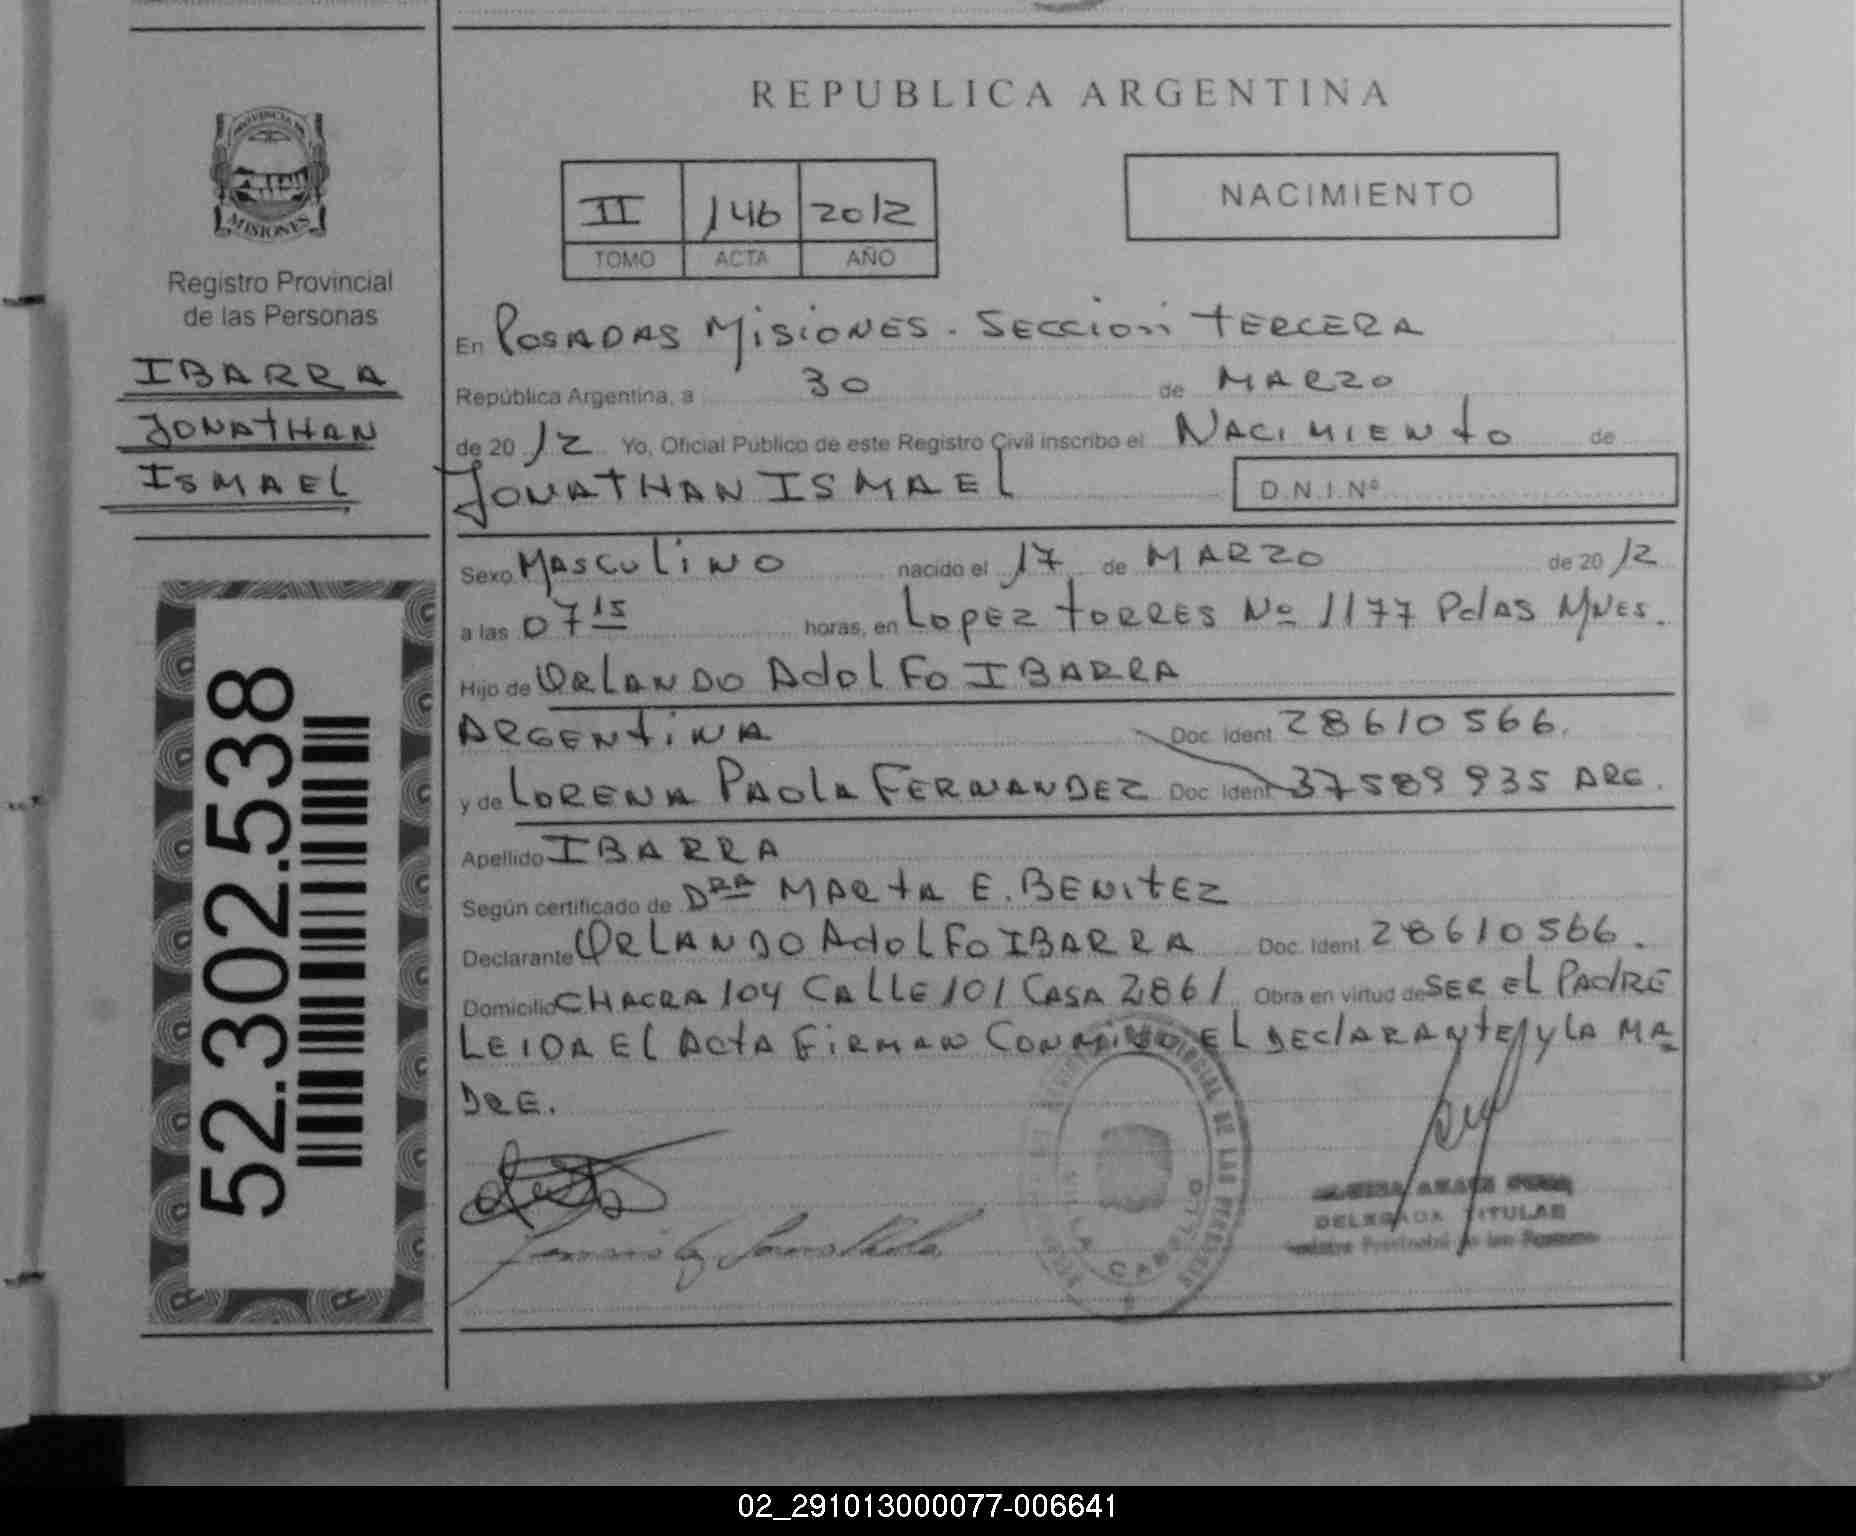 REPUBLICA ARGENTINA
PROVINCIA DE
MISIONES
Registro Provincial
de las Personas
IBARRA
JONATHAN
ISMAEL
52.302.538
II 146 2012
TOMO ACTA AÑO
NACIMIENTO
En POSADAS MISIONES. SECCION TERCERA
República Argentina, a 30 de MARZO
de 2012 Yo, Oficial Público de este Registro Civil inscribo el NACIMIENTO de
JONATHAN ISMAEL D.N.I.Nº
Sexo MASCULINO nacido el 17 de MARZO de 2012
a las 07 15 horas, en LOPEZ TORRES Nº 1177 PdAS MNES.
Hijo de ORLANDO ADOLFO IBARRA
ARGENTINA Doc. Ident. 28610566.
y de LORENA PAOLA FERNANDEZ Doc. Ident. 37589935 ARG.
Apellido IBARRA
Según certificado de DRA MARTA E. BENITEZ
Declarante ORLANDO ADOLFO IBARRA Doc. Ident. 28610566.
Domicilio CHACRA 104 CALLE 101 CASA 2861 Obra en virtud de SER EL PADRE
LEIDA EL ACTA FIRMAN CONMIGO EL DECLARANTE Y LA MA
DRE.
VILLA CABELLO
DELEGADA TITULAR
02_291013000077-006641